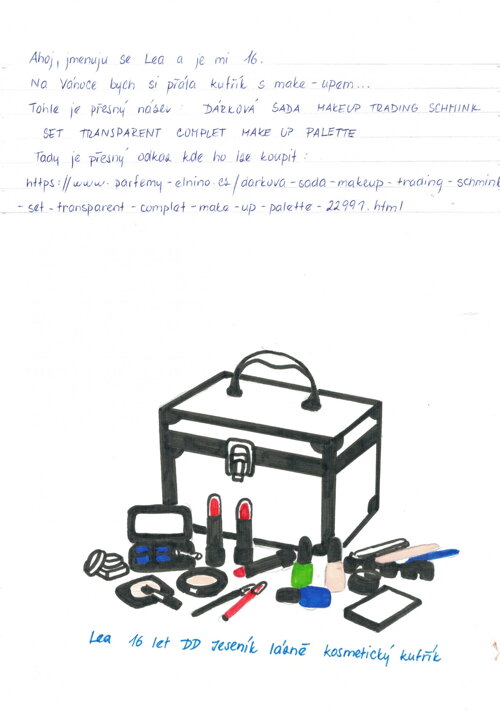 Ahoj, jmenuju se Lea a je mi 16.
Na Vánoce bych si přála kufřík s make-upem...
Tohle je přesný název: DÁRKOVÁ SADA MAKEUP TRADING SCHMINK
SET TRANSPARENT COMPLET MAKE UP PALETTE
Tady je přesný odkaz kde ho lze koupit:
https://www.parfemy-elnino.cz/darkova-sada-makeup-trading-schmink
-set-transparent-complet-make-up-palette-22991.html
Lea 16 let DD Jeseník lázně kosmetický kufřík